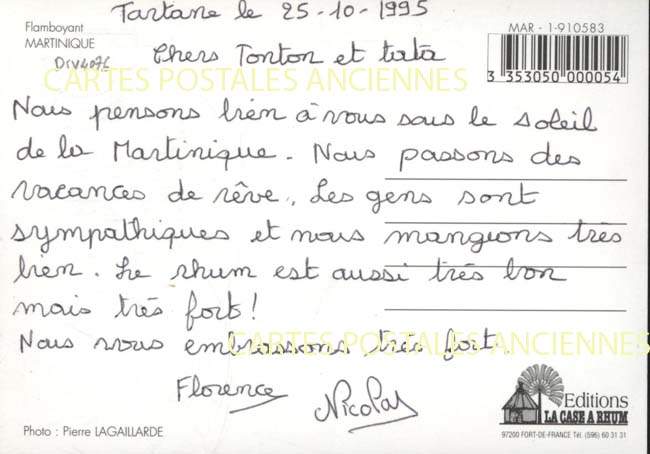 Tartane le 25-10-1995
Flamboyant
MARTINIQUE
MAR - 1-910583
3 353050 000054
Chers Tonton et tata
CARTES POSTALES ANCIENNES
Nous pensons bien à vous sous le soleil
de la Martinique. Nous passons des
vacances de rêve, Les gens sont
sympathiques et nous mangeons très
bien. Le rhum est aussi très bon
mais très fort!
Nous vous embrassons très fort.
CARTES POSTALES ANCIENNES
Florence Nicolas
Editions
LA CASE A RHUM
Photo : Pierre LAGAILLARDE
97200 FORT-DE-FRANCE Tél. (596) 60 31 31